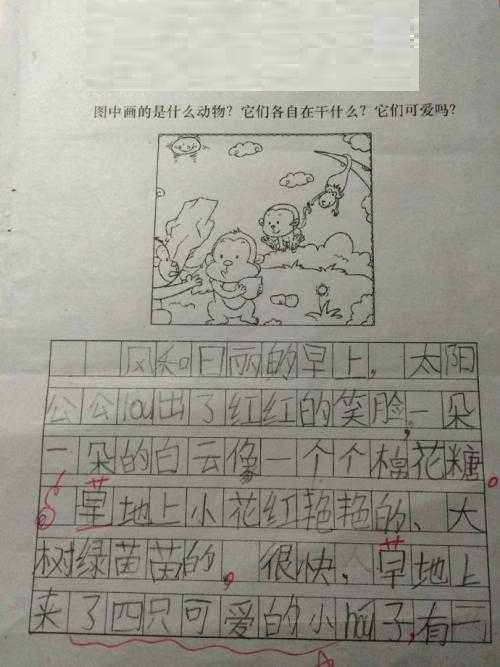 图中画的是什么动物？它们各自在干什么？它们可爱吗？
风和日丽的早上，太阳
公公lou出了红红的笑脸，一朵
一朵的白云像一个个棉花糖。
草地上小花红艳艳的、大
树绿苗苗的，很快，草地上
来了四只可爱的小hou子，有一